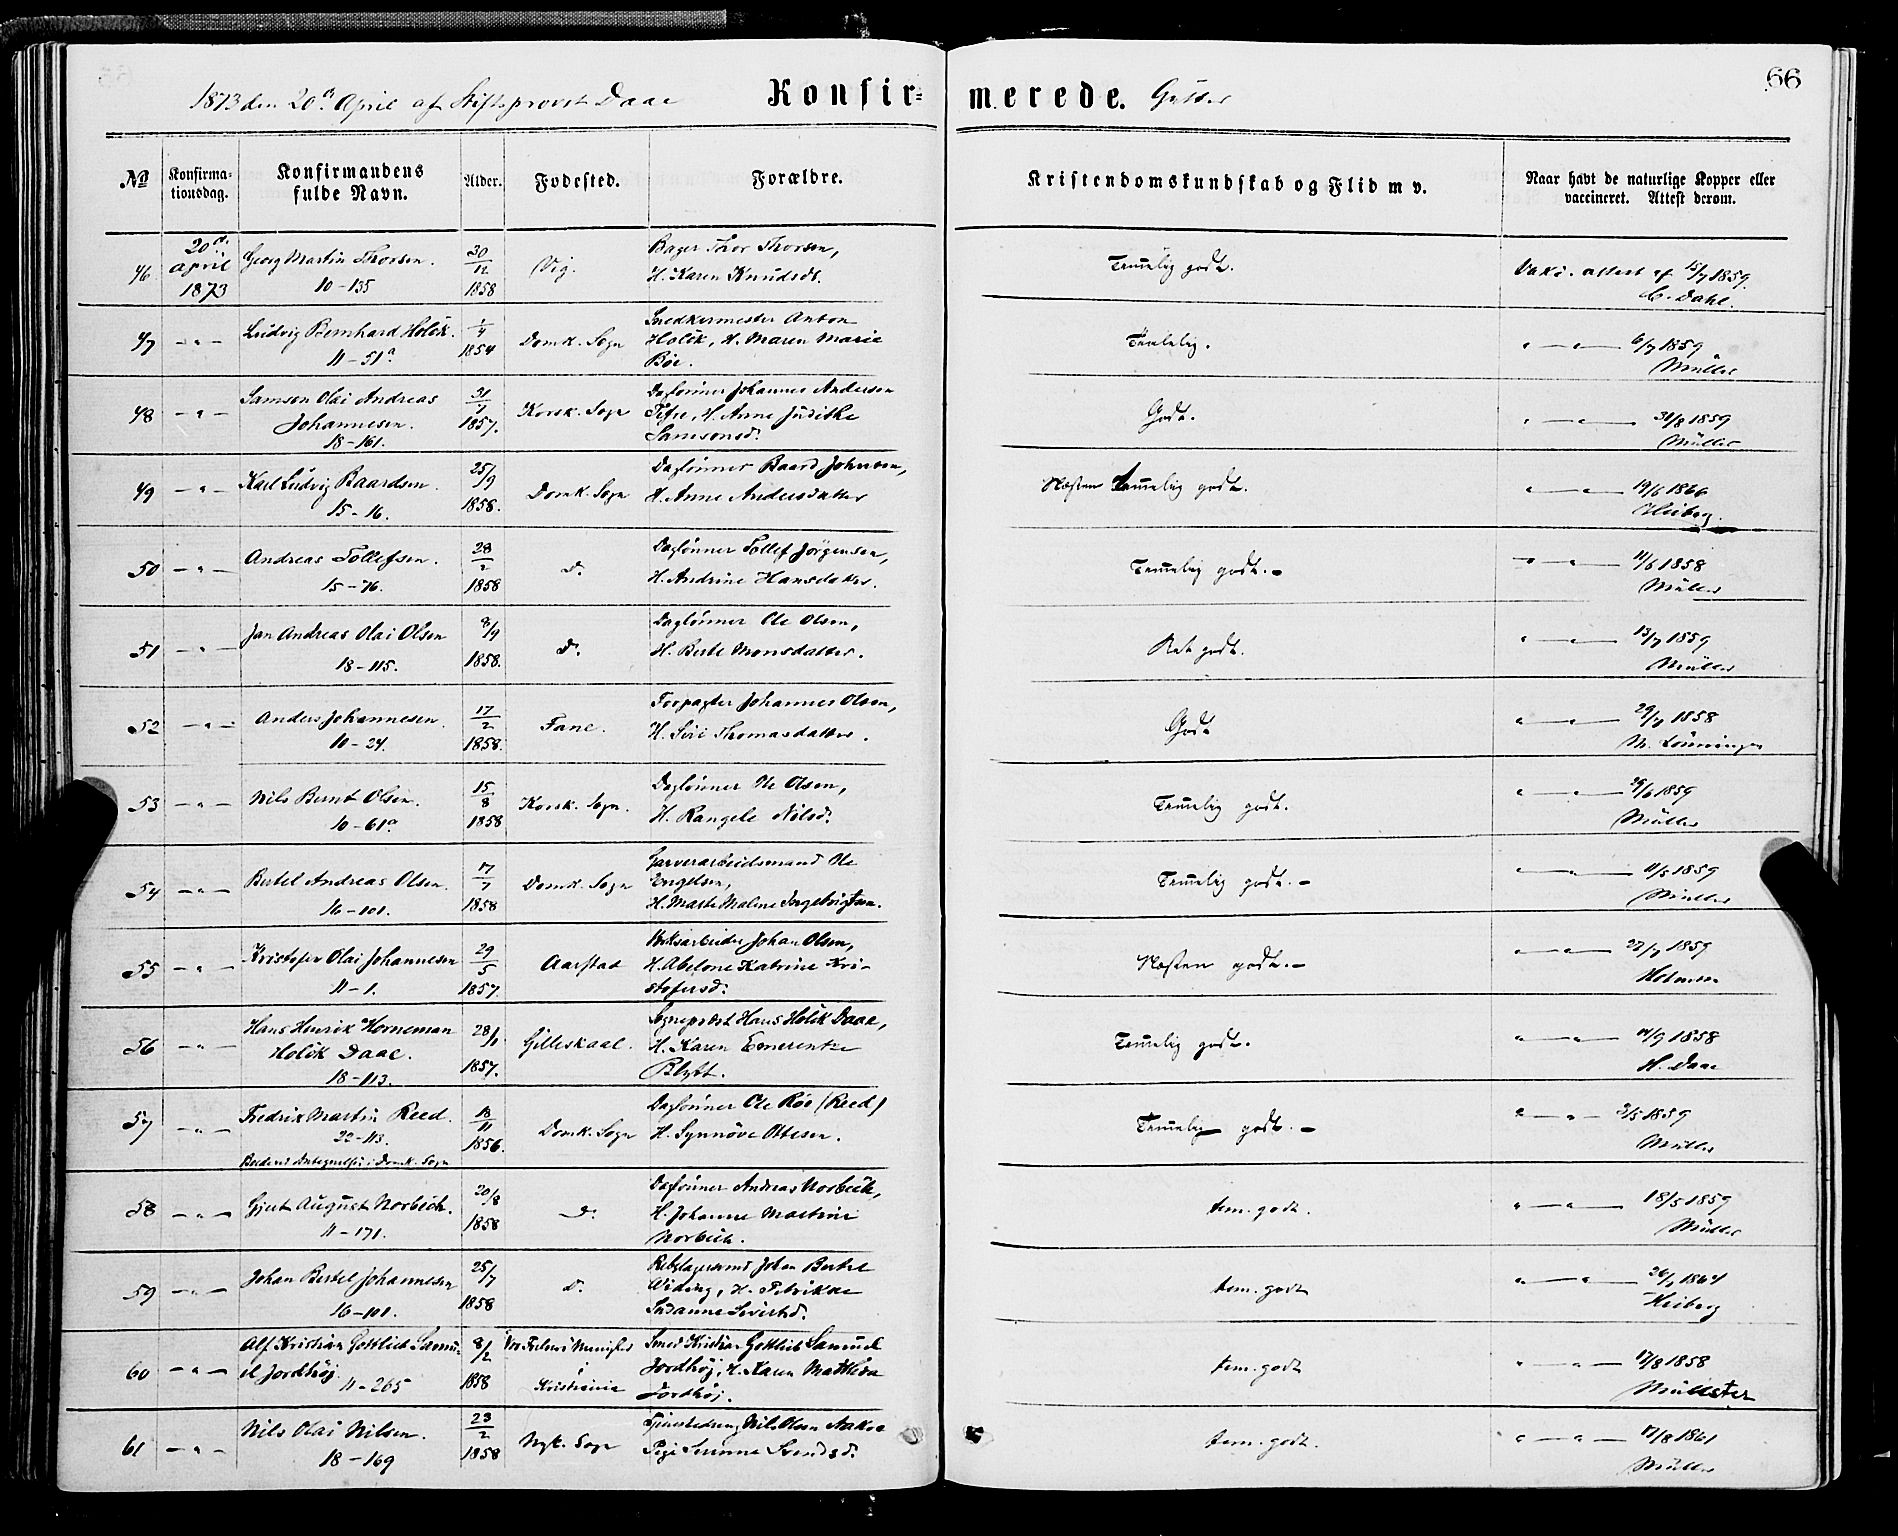 66
1873 den 20de April af Stiftsprovst Daae Konfirmerede. Gutter
No Konfirmationsdag. Konfirmandens fulde Navn. Alder. Fødested. Forældre. Kristendomskundskab og Flid m v. Naar havt de naturlige Kopper eller vaccineret. Attest derom.
46 20de April 1873 Georg Martin Thorsen. 10-135 30/12 1858 Vig. Bager Thor Thorsen, H. Karen Knudsdt. Temelig godt. Vaks. attest af 15/7 1859. C. Dahl.
47 -"- Ludvig Bernhard Holck. 11-51a 1/4 1854 Domk. Sogn Snedkermester Anton Holck, H. Maren Marie Bøe. Taalelig. "-"- 6/7 1859 Müller
48 -"- Samson Olai Andreas Johannesen. 18-161. 31/7 1857. Korsk. Sogn Daglønner Johannes Andersen H. Anne Judithe Samsonsd. Godt. "-"- 31/8 1859 Müller
49 -"- Karl Ludvig Baardsen. 15-16. 25/9 1858. Domk. Sogn Daglønner Baard Johnsen, H. Anne Andersdatter Næsten temelig godt. "-"- 19/6 1866 Heiberg.
50 -"- Andreas Tollefsen. 15-76. 28/2 1858 do. Daglønner Tollef Jørgensen, H. Andrine Hansdatter. Temelig godt.- "-"- 11/6 1858 Müller
51 -"- Jan Andreas Olai Olsen 18-115. 8/9 1858. do. Daglønner Ole Olsen, H. Berte Monsdatter. Ret godt. "-"- 13/7 1859 Müller
52 -"- Anders Johannesen. 10-24. 17/2 1858. Fane. Forpagter Johannes Olsen, H. Siri Thomasdatter. Godt "-"- 29/7 1858 M. Lønningen
53 -"- Nils Bernt Olsen. 10-61a 15/8 1858 Korsk. Sogn. Daglønner Ole Olsen, H. Rangele Nilsd. Temelig godt. "-"- /6 1859 Müller
54 -"- Bertel Andreas Olsen. 16-101. 17/7 1858 Domk. Sogn Garverarbeidsmand Ole Engelsen, H. Marte Malene Ingebrigtsen. Temelig godt.- "-"- 11/5 1859 Müller
55 -"- Kristofer Olai Johannesen 11-1. 29/5 1857. Aarstad Johan Olsen, H. Abelone Katrine Kristofersd. Næsten godt.- "-"- 27/7 1859
56 -"- Hans Henrik Horneman Holck Daae. 18-113. 28/1 1857. Gilleskaal. Sogneprest Hans Holck Daae, H. Karen Emerentze Blytt. Temelig godt. "-"- 14/9 1858 H. Daae
57 -"- Fredrik Martin Reed. 22-113. Domk. Sogn 18/11 1856. Domk. Sogn Daglønner Ole Røe (Reed) H. Synnøve Ottesen. Temelig godt.- "-"- 3/5 1859 Müller
58 -"- Gjert August Norbech. 11-171. 20/8 1858 do. Daglønner Andreas Norbech, H. Johanne Martine Norbech. tem. godt. "-"- 18/5 1859 Müller
59 -"- Johan Bertel Johannesen 16-101. 25/7 1858 do. Rebslagersvend Johan Bertel Widing, H. Petrikke Susanne Sivertsd. tem. godt "-"- 1864 Heiberg
60 -"- Alf Kristian Gottlieb Samuel Jordhøj. 11-265 8/2 1858 Vor Frelsers Menighed i Kristiania Smed Kristian Gottlieb Samuel Jordhøj, H. Karen Mathilda Jordhøj. tem. godt "-"- 17/8 1858
61 -"- Nils Olai Nilsen. 18-169 23/2 1858 Nyk. Sogn Tjenestedreng Nils Olsen Aakre Pige Serine Svendsd. tem. godt. "-"- 17/8 1861 Müller